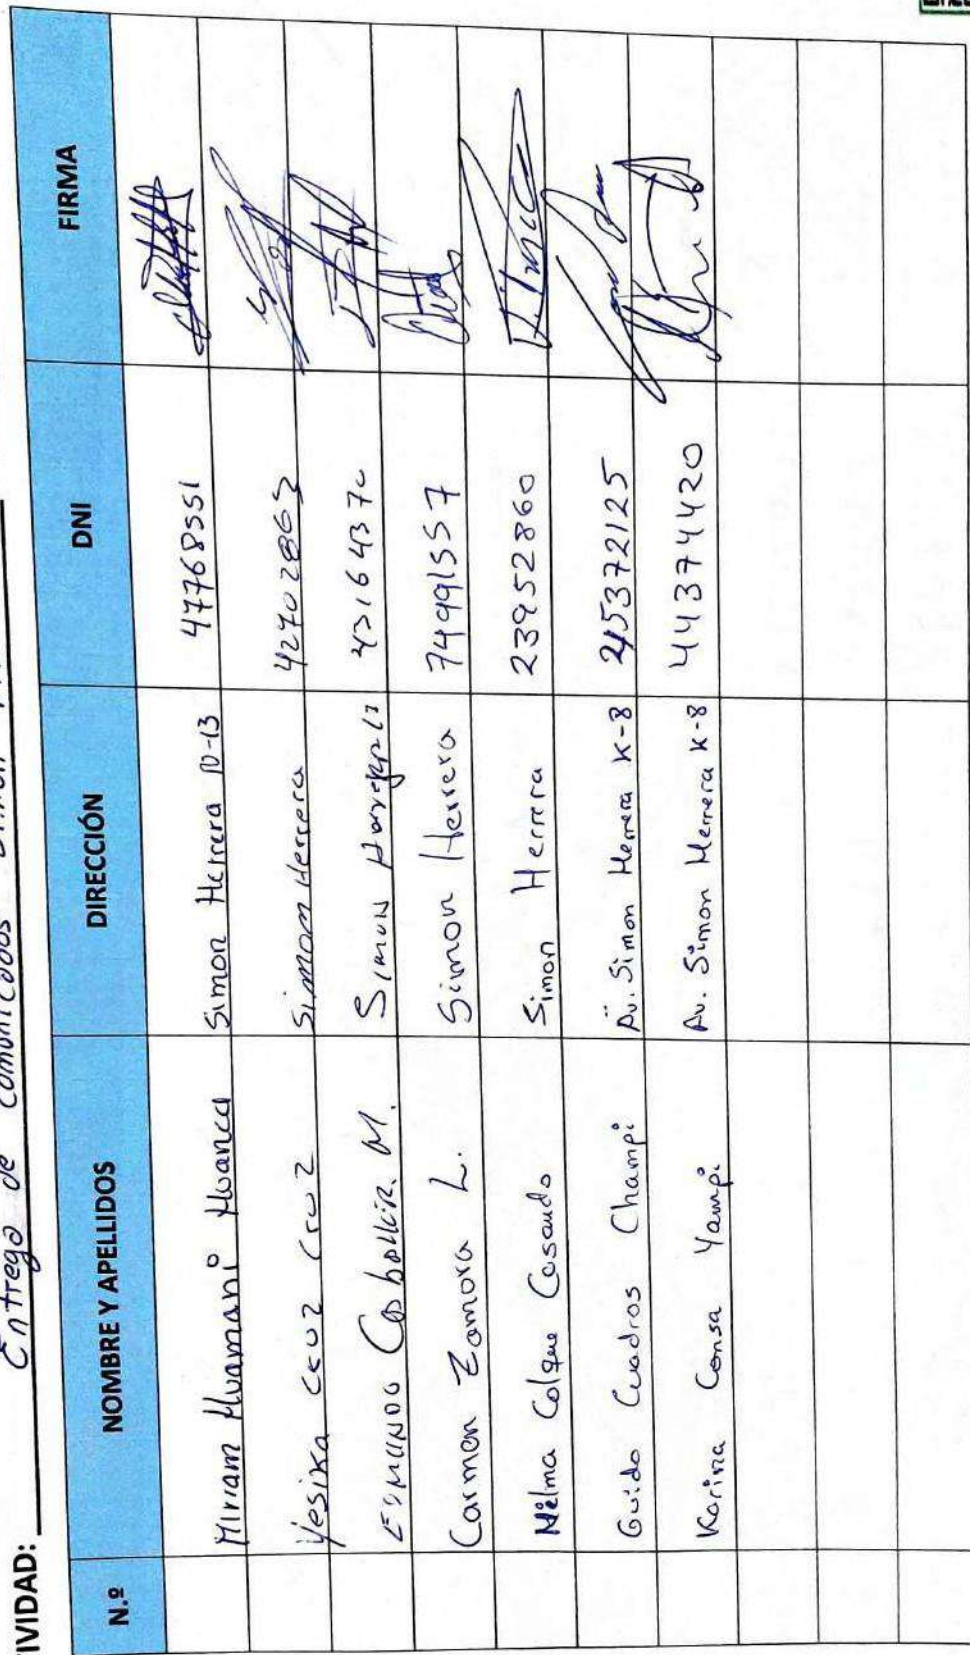 IVIDAD: Entrega de comunicados Simon
N.º NOMBRE Y APELLIDOS DIRECCIÓN DNI FIRMA
Miriam Huamani Huanca Simon Herrera 47768551
Yesika Cruz Cruz Simon Herrera 42702865
Simon 43164370
Carmen Zamora L. Simon Herrera 74991557
Nelma Colque Casando Simon Herrera 23952860
Guido Cuadros Champi Av. Simon Herrera K-8 25372125
Karina Consa Yampi Av. Simon Herrera K-8 44374420